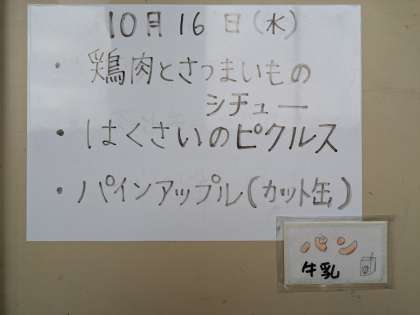 10月16日(水)
・鶏肉とさつまいもの
シチュー
・はくさいのピクルス
・パインアップル(カット缶)
パン
牛乳